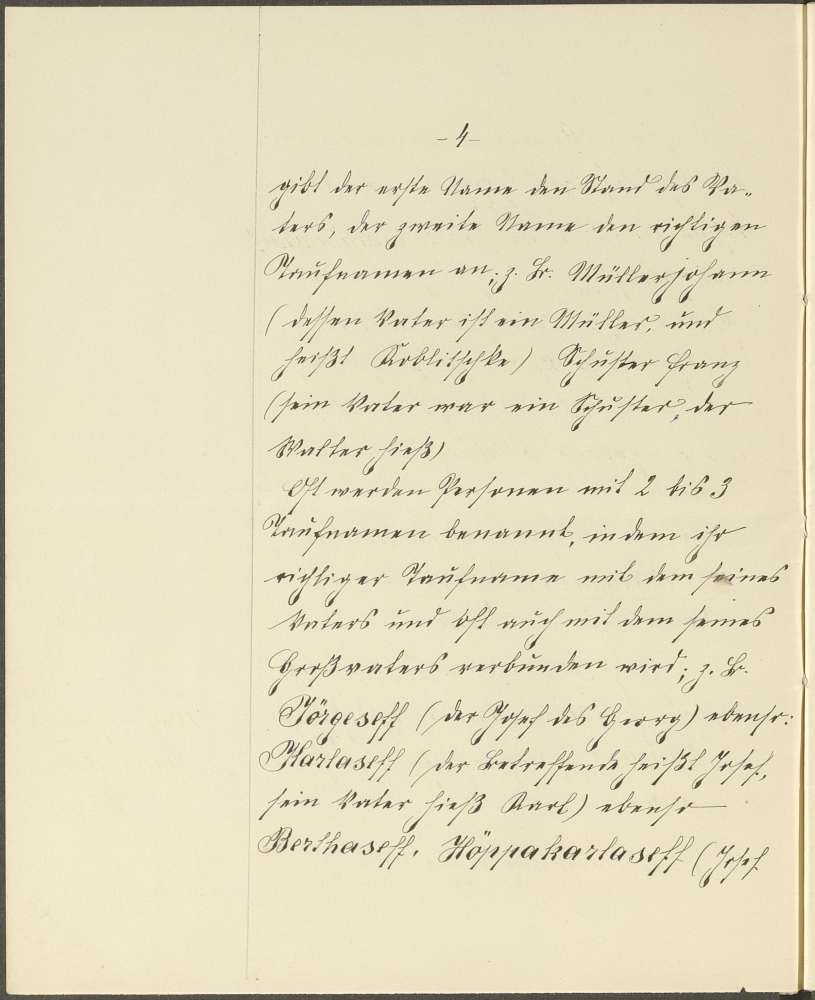 – 4 –
gibt der erste Name den Stand des Va-
ters, der zweite Name den richtigen
Taufnamen an; z. B. Müllerjohann
(dessen Vater ist ein Müller, und
heißt Koblitschke) Schuster Franz
(sein Vater war ein Schuster, der
Walter hieß)
Oft werden Personen mit 2 bis 3
Taufnamen benannt, indem ihr
richtiger Taufname mit dem seines
Vaters und oft auch mit dem seines
Großvaters verbunden wird; z. B.
Jörgeseff (der Josef des Georg) ebenso:
Karlaseff (der Betreffende heißt Josef,
sein Vater hieß Karl) ebenso
Berthaseff, Höppakarlaseff (Josef